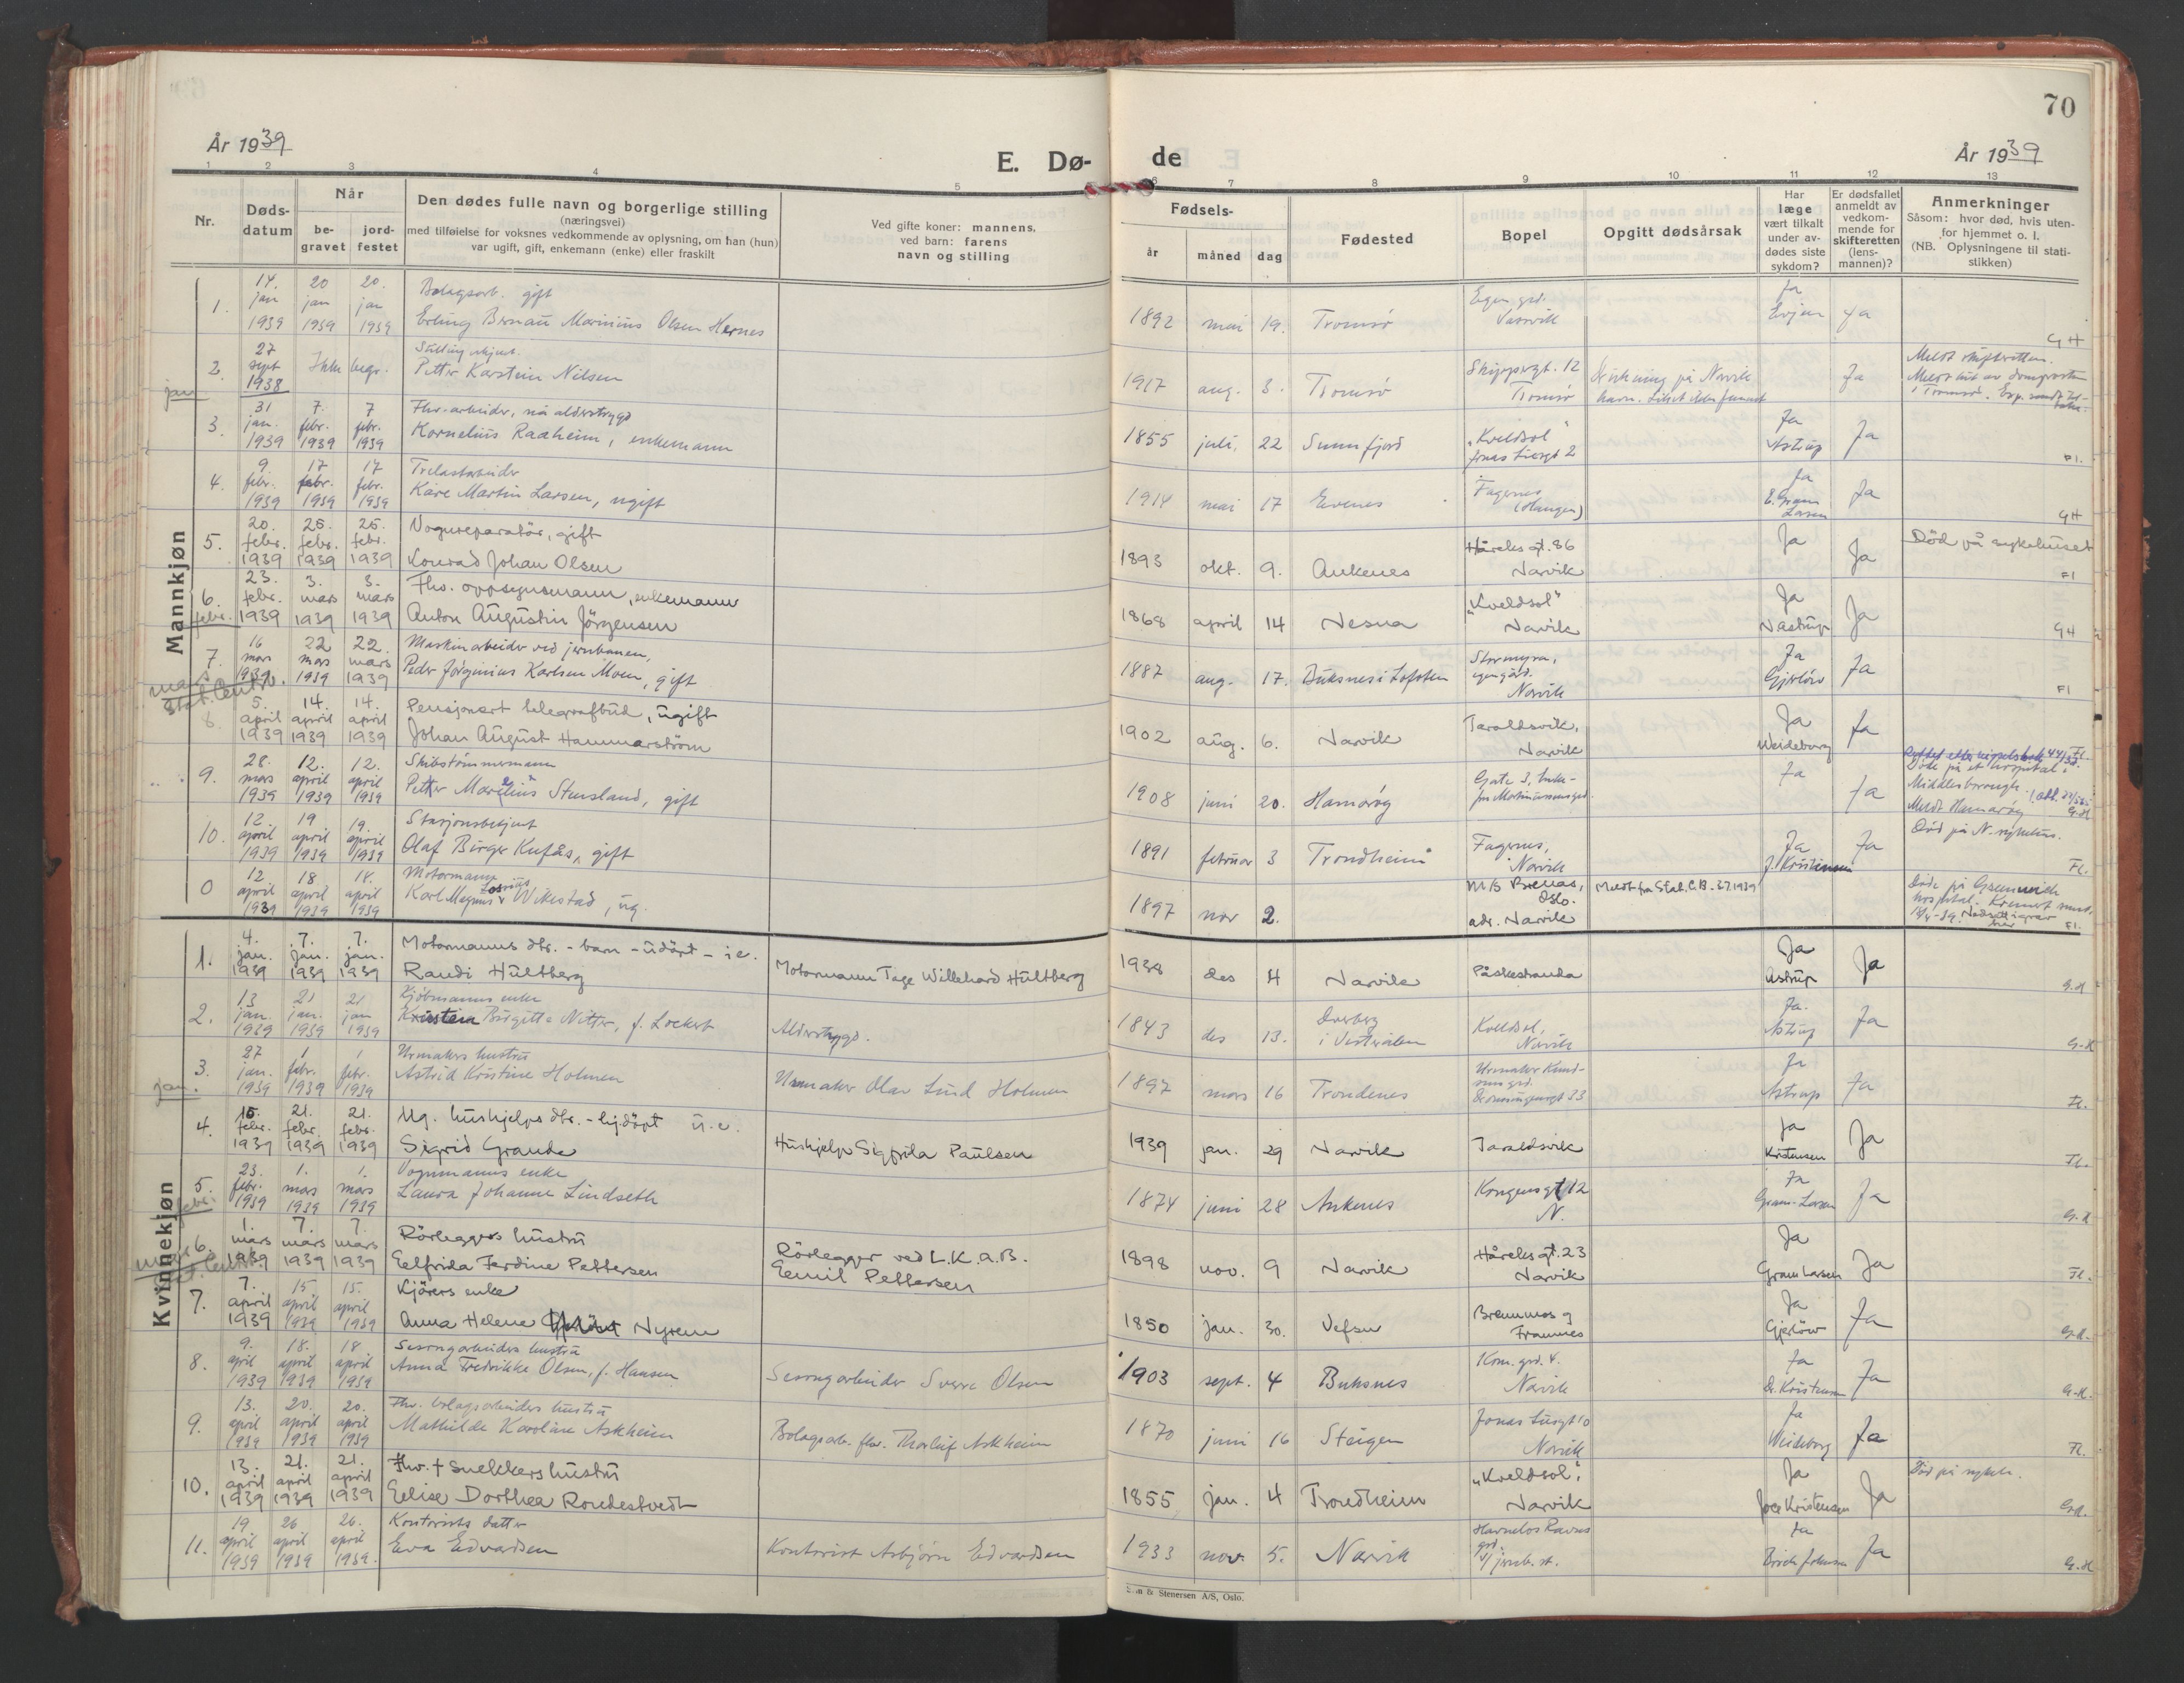 70
År 1939
E. Dø-
de
År 1939
1 2 3 4 5 6 7 8 9 10 11 12 13
Nr.
Døds-
datum
Når
be-
gravet
jord-
festet
Den dødes fulle navn og borgerlige stilling
(næringsvei)
med tilføielse for voksnes vedkommende av oplysning, om han (hun)
var ugift, gift, enkemann (enke) eller fraskilt
Ved gifte koner: mannens,
ved barn: farens
navn og stilling
Fødsels-
år måned dag
Fødested
Bopel
Opgitt dødsårsak
Har
læge
vært tilkalt
under av-
dødes siste
sykdom?
Er dødsfallet
anmeldt av
vedkom-
mende for
skifteretten
(lens-
mannen)?
Anmerkninger
Såsom: hvor død, hvis uten-
for hjemmet o. l.
(NB. Oplysningene til stati-
stikken)
Mannkjøn
14. 20 20. Bolagsarb. gift
jan jan jan
1. 1939 1939 1939 Erling Bernau Marinius Olsen Hernes
1892 mai 19. Tromsø Egen grd. Vassvik Ja Evjen Ja G H
27 Stilling ukjent.
2. sept Ikke begr. Petter Karstein Nilsen
1938
1917 aug. 3. Tromsø Skippergt. 12 Tromsø Drukning på Narvik havn. Liket ikke funnet Ja Meldt skifteretten.
Meldt hit av domprosten
i Tromsø.
jan
31 7. 7 Fhv. arbeider, nå alderstrygd
3. jan. febr. febr. Kornelius Raaheim, enkemann
1939 1939 1939
1855 juli. 22 Sunnfjord "Kveldsol" Jonas Liesgt 2 Ja Astrup Ja Fl.
9. 17 17 Trelastarbeider
4. febr. febr. febr. Kåre Martin Larsen, ugift
1939 1939 1939
1914 mai 17 Evenes Fagernes (Haugen) Ja E. Gram Larsen Ja GH
20. 25. 25. Vognreparatör, gift
5. febr. febr. febr.
1939 1939 1939 Konrad Johan Olsen
1893 okt. 9. Ankenes Håreks gt. 86 Narvik Ja Ja Död på sykehuset Fl
23. 3. 3. Fhv. oppsynsmann, enkemann
6. febr. mars mars
febr. 1939 1939 1939 Anton Augustin Jörgensen
1868 april 14 Nesna "Kveldsol" Narvik Ja Nastrup Ja GH
16 22 22. Maskinarbeider ved jernbanen,
7. mars mars mars Peder Jørginius Karlsen Moen, gift
1939 1939 1939
1887 aug. 17. Buksnes i Lofoten Stormyra, egen gård. Narvik Ja Gjerlöw Ja Fl
mars
Stat. Centr.
5. 14. 14. Pensjonert telegrafbud, ugift
8. april april april
1939 1939 1939 Johan August Hammarström
1902 aug. 6. Narvik Taraldsvik, Narvik Ja Weideborg Ja Fl.
28. 12. 12. Skibstömmermann
9. mars april april
1939 1939 1939 Petter Marelius Stensland, gift
1908 juni 20. Hamarøy Gate 3, Ja Ja
Døde på et hospital i
Middlesborough.
Meldt Hamarøy G.H
12. 19 19. Stasjonsbetjent
10. april april april
1939 1939 1939 Olaf Birger Kufås, gift
1891 februar 3 Trondheim Fagernes, Narvik Ja J. Kristensen Ja Død på N. sykehus. Fl.
12 18 18. Motormann
0 april april april Karl Magnus Wikestad, ug.
1939 1939 1939
1897 nov 2. M/S Brenas, Oslo. adr. Narvik Meldt fra Stat. C.B. 3.7.1939
Døde på Greenwich
hospital. Fl.
Kvinnekjøn
4. 7. 7. Motormanns dtr. - barn - udöpt - i e.
1. jan. jan. jan.
1939 1939 1939 Randi Hultberg Motormann Tage Willehard Hultberg
1938 des 4 Narvik Påskestranda Ja Astrup Ja G.H
13 21 21 Kjöbmanns enke
2. jan. jan. jan Birgitte Nitter, f. Lockert Alderstrygd.
1939 1939 1939
1843 des 13. Dverberg i Vesterålen Kveldsol, Narvik Ja. Astrup Ja G-H
27 1 1 Urmakers hustru
3. jan. febr. febr. Astrid Kristine Holmen Urmaker Olav Lind Holmen
jan. 1939 1939 1939
1897 mars 16 Trondenes Urmaker Knud- sens grd. Dronningensgt 33 Ja Astrup Ja Fl.
15. 21. 21. Ug. hushjelps dtr. - hj.döpt u. e.
4. febr. febr. febr.
1939 1939 1939 Sigrid Grande Hushjelp Sigfrida Paulsen
1939 jan. 29 Narvik Taraldsvik Ja Kristensen Ja Fl.
23. 1. 1. Vognmanns enke
5. febr. mars mars Laura Johanne Lindseth
febr. 1939 1939 1939
1874 juni 28 Ankenes Kongensgt 12 N. Ja Gram-Larsen Ja G.H
1. 7. 7. Rörleggers hustru
6. mars mars mars Rörlegger ved L.K.A.B.
1939 1939 1939 Eelfrida Ferdine Pettersen Eemil Pettersen
1898 nov. 9 Narvik Håreks gt. 23 Narvik Ja Gram Larsen Ja Fl.
7. 15 15. Kjörers enke
7. april april april
1939 1939 1939 Anna Helene Nyrem
1850 jan. 30. Vefsn Bremmos g Framnes Ja Gjerlöw Ja G.H.
9. 18. 18 Sesongarbeiders hustru
8. april april april Anna Fredrikke Olsen, f. Hansen Sesongarbeider Sverre Olsen
1939 1939 1939
1903 sept. 4 Buksnes Kom. grd. V. Narvik Ja Dr. Kristensen Ja G.H.
13. 20. 20. Fhv. bolagsarbeiders hustru
9. april april april Mathilde Karoline Askheim Bolagsarb. fhv. Thorleif Askheim
1939 1939 1939
1870 juni 16 Steigen Jonas Liesgt 10 Narvik Ja Weideborg Ja Fl.
13. 21. 21. Fhv. + snekkers hustru
10. april april april
1939 1939 1939 Eelise Dorthea Rondestvedt
1855 jan. 4 Trondheim "Kveldsol", Narvik Ja Joer Kristensen Ja Død på sykeh. G.H.
19 26 26. Kontorists datter
11. april april april Eva Edvardsen Kontorist Asbjørn Edvardsen
1939 1939 1939.
1933 nov. 5. Narvik grd. v/ jernb. st. Ja Ja G.H
& Stenersen A/S, Oslo.